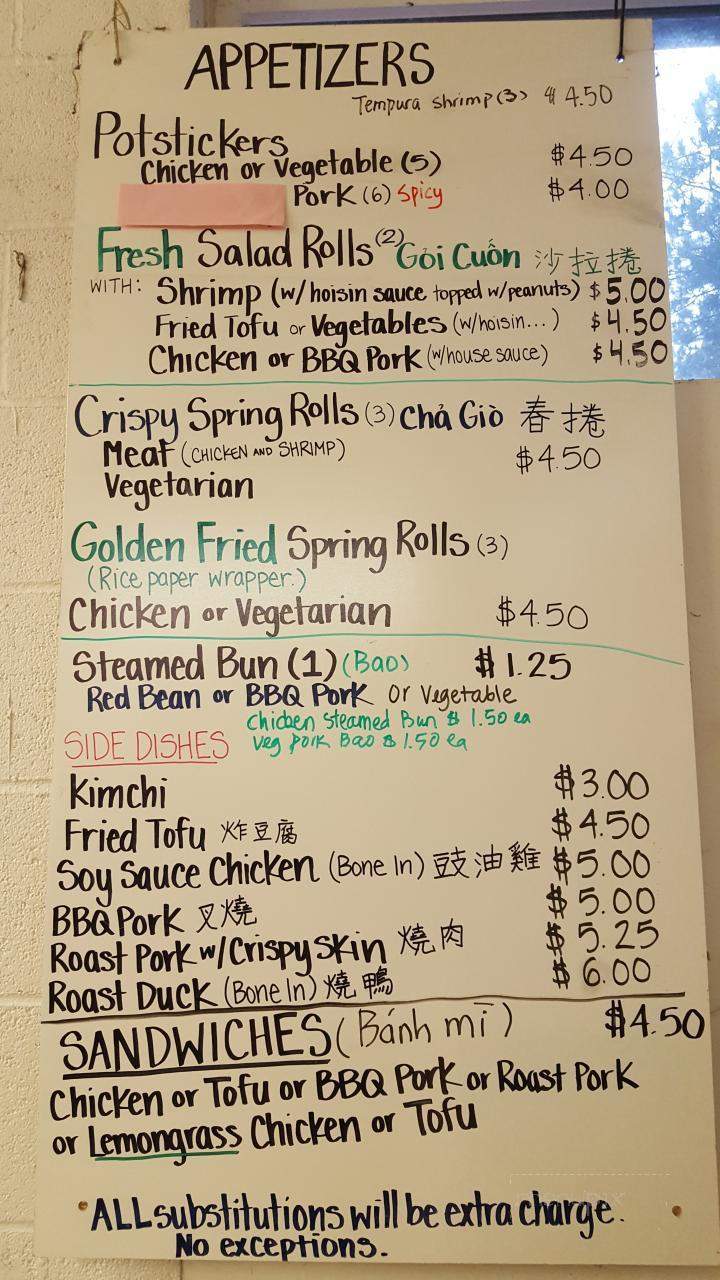 APPETIZERS
Tempura shrimp (3) $4.50
Potstickers
Chicken or Vegetable (5) $4.50
Pork (6) Spicy $4.00
Fresh Salad Rolls (2) Gỏi Cuốn 沙拉捲
WITH: Shrimp (w/hoisin sauce topped w/peanuts) $5.00
Fried Tofu or Vegetables (w/hoisin...) $4.50
Chicken or BBQ Pork (w/house sauce) $4.50
Crispy Spring Rolls (3) Chả Giò 春捲
Meat (CHICKEN AND SHRIMP) $4.50
Vegetarian
Golden Fried Spring Rolls (3)
(Rice paper wrapper.)
Chicken or Vegetarian $4.50
Steamed Bun (1) (Bao) $1.25
Red Bean or BBQ Pork or Vegetable
Chicken Steamed Bun $1.50 ea
Veg pork Bao $1.50 ea
SIDE DISHES
Kimchi $3.00
Fried Tofu 炸豆腐 $4.50
Soy Sauce Chicken (Bone In) 豉油雞 $5.00
BBQ Pork 叉燒 $5.00
Roast Pork w/Crispy Skin 燒肉 $5.25
Roast Duck (Bone In) 燒鴨 $6.00
SANDWICHES (Bánh mī) $4.50
Chicken or Tofu or BBQ Pork or Roast Pork
or Lemongrass Chicken or Tofu
ALL substitutions will be extra charge.
No exceptions.